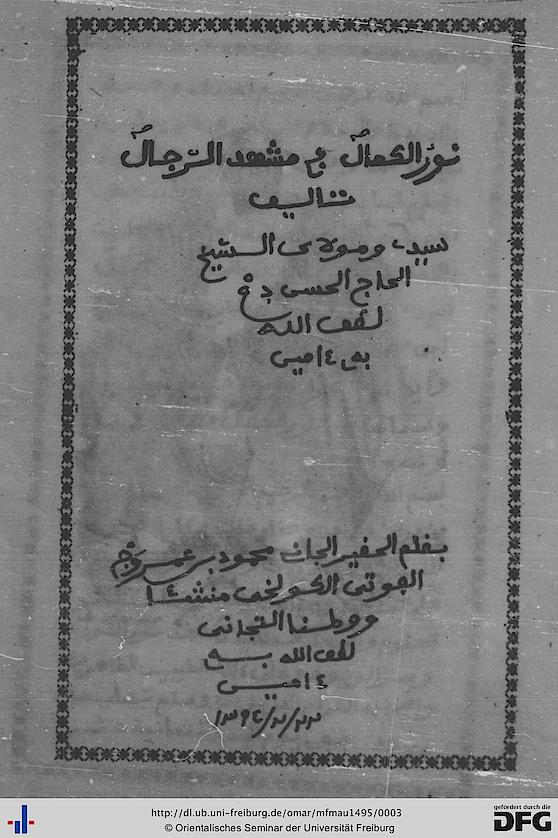 نور الكمال في مشهد الرجال
تاليف
سيدي ومولاي الشيخ
الحاج الحسن
لطف الله
به ءامين
بقلم الحقير الجاني محمود بن عمر
الفوتي الكولخي منشئا
ووطنا التجاني
لطف الله به
ءامين
http://dl.ub.uni-freiburg.de/omar/mfmau1495/0003
© Orientalisches Seminar der Universität Freiburg
gefördert durch die
DFG